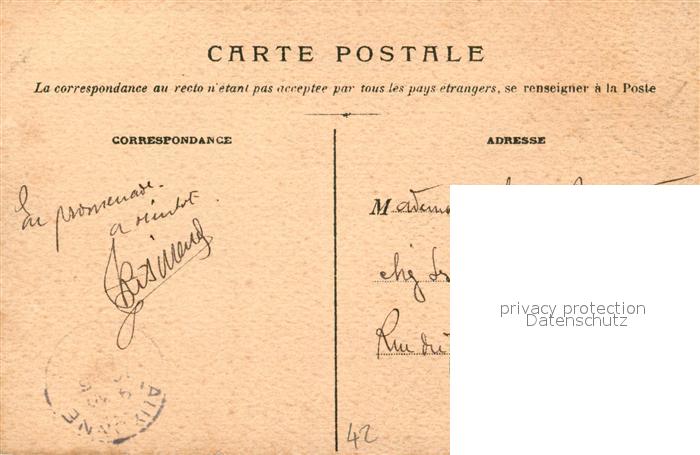 CARTE POSTALE
La correspondance au recto n'étant pas acceptée par tous les pays étrangers, se renseigner à la Poste
CORRESPONDANCE
ADRESSE
En promenade.
a bientot
M
chez
Rue du
privacy protection
Datenschutz
42